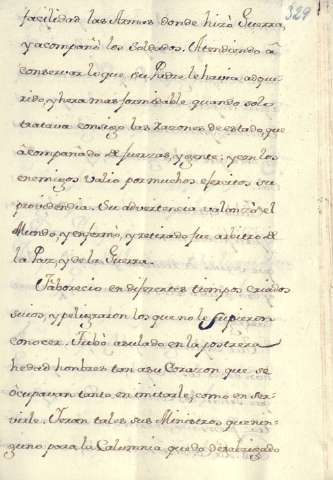 329
facilidad las Armas donde hizò Guerra,
y acompañò los Soldados. Atendiendo â
conservar lo que su Padre le havia adqui-
rido, y hera mas formidable quando solo
tratava consigo las razones de estado, que
âcompañado de fuerzas, y gente; y con los
enemigos valio por muchos exercitos su
providencia. Su advertencia valanzò el
Mundo, y enfermo, y retirado fue arbitro de
la Paz, y de la Guerra.
Faborecio en diferentes tiempos criados
suios, y peligraron los que no le supieron
conocer. Tubò âsulado en la postrera
hedad hombres tan a su Corazon que se
òcupavan tanto en imitarle, como en ser-
virle. Veran tales sus Ministros que nin-
guno para la Calumnia quedò desabrigado